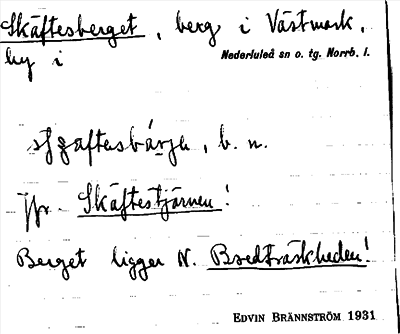 Skäftesberget, berg i Västmark,
by i Nederluleå sn o. tg. Norrb. l.
b. n.
Jfr Skäftestjärnen!
Berget ligger N. Bredträskheden!
EDVIN BRÄNNSTRÖM 1931